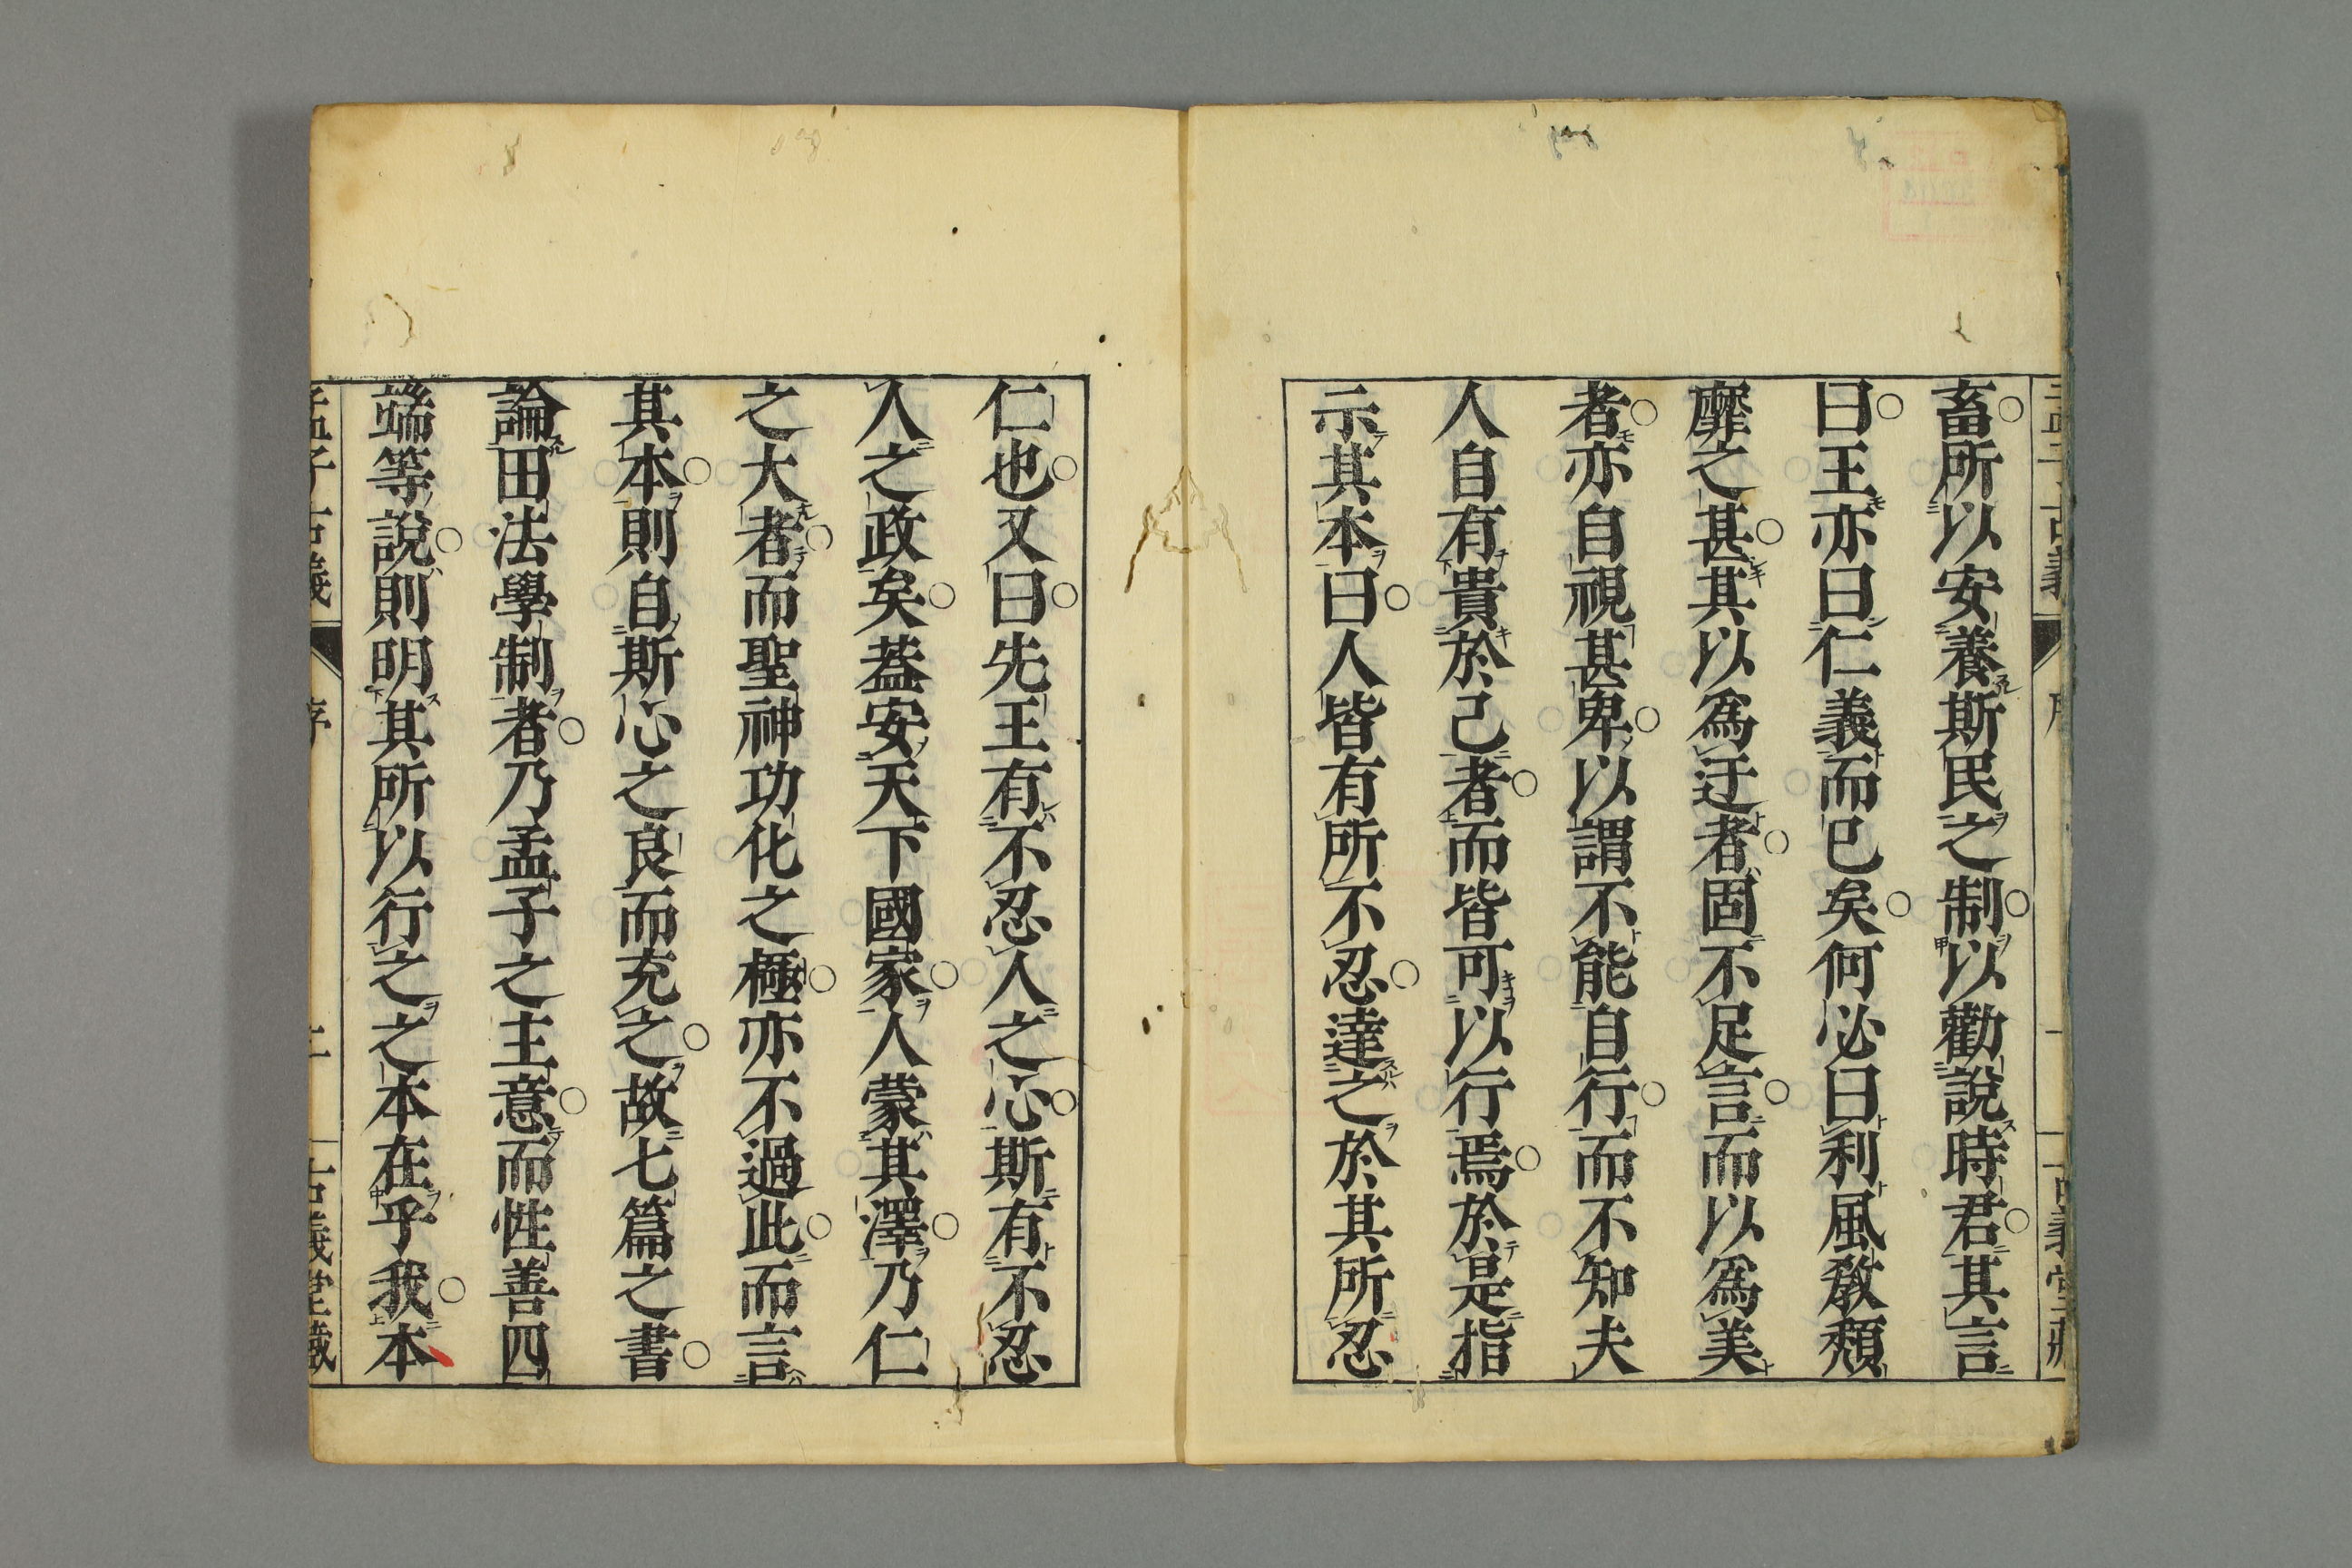 畜所以安養斯民之制以勸說時君其言
曰王亦曰仁義而已矣何必曰利風敎頹
靡之甚其以爲迂者固不足言而以爲美
者亦自視甚卑以謂不能自行而不知夫
人自有貴於己者而皆可以行焉於是指
示其本曰人皆有所不忍達之於其所忍
仁也又曰先王有不忍人之心斯有不忍
人之政矣葢安天下國家人蒙其澤乃仁
之大者而聖神功化之極亦不過此而言
其本則自斯心之良而充之故七篇之書
論田法學制者乃孟子之主意而性善四
端等說則明其所以行之之本在乎我本
孟子古義 序 二 古義堂藏